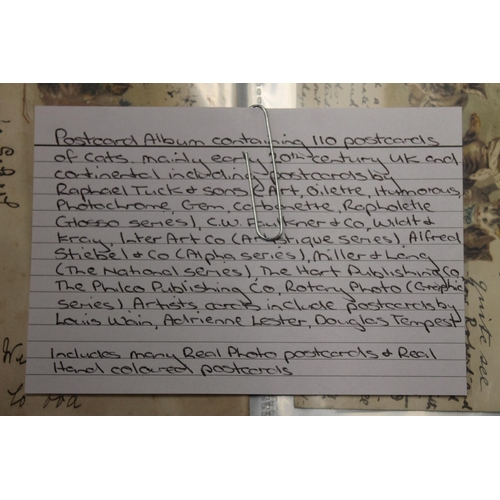 Postcard Album containing 110 postcards
of cats. mainly early 20th century UK and
continental including postcards by
Raphael Tuck & sons (Art, Oilette, Humorous,
Photochrome, Gem, Carbonette, Rapholette
Glosso series), C.W. Faulkner & Co, Wildt &
Kray, Inter Art Co (Artistique series), Alfred
Stiebel & Co (Alpha series), Miller & Lang
(The National series), The Hart Publishing Co,
The Philco Publishing Co, Rotary Photo (Graphic
series) Artists cards include postcards by
Louis Wain, Adrienne Lester, Douglas Tempest
Includes many Real Photo postcards & Real
Hand coloured postcards
quite see